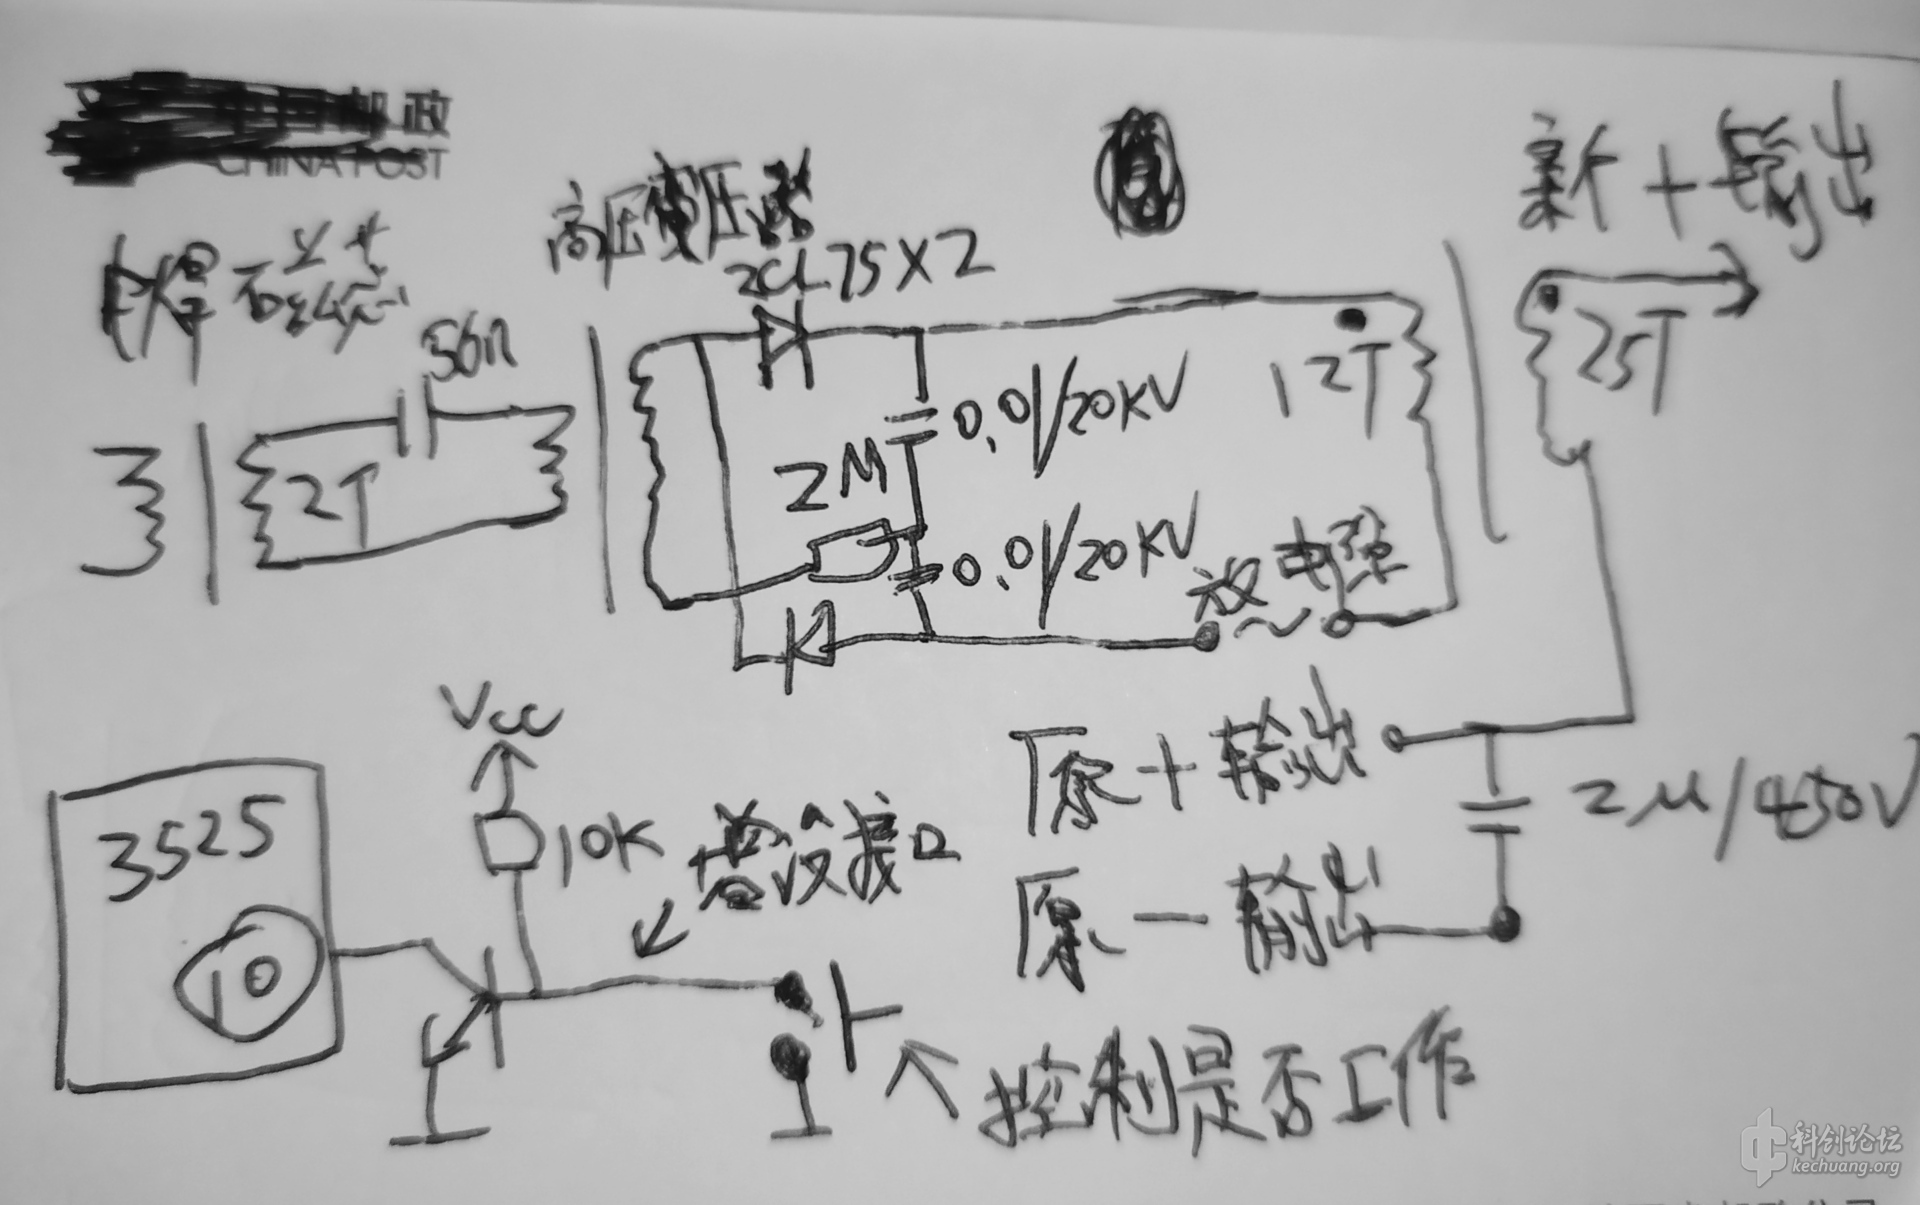 邮政
CHINA POST
新+输出
高压变压器
2CL75X2
电焊磁芯
56n
2T
12T
25T
0.01/20KV
2M
0.01/20KV
放电弧
Vcc
原+输出
2μ/450V
3525
10K
增设接口
原-输出
10
控制是否工作
科创论坛
kechuang.org